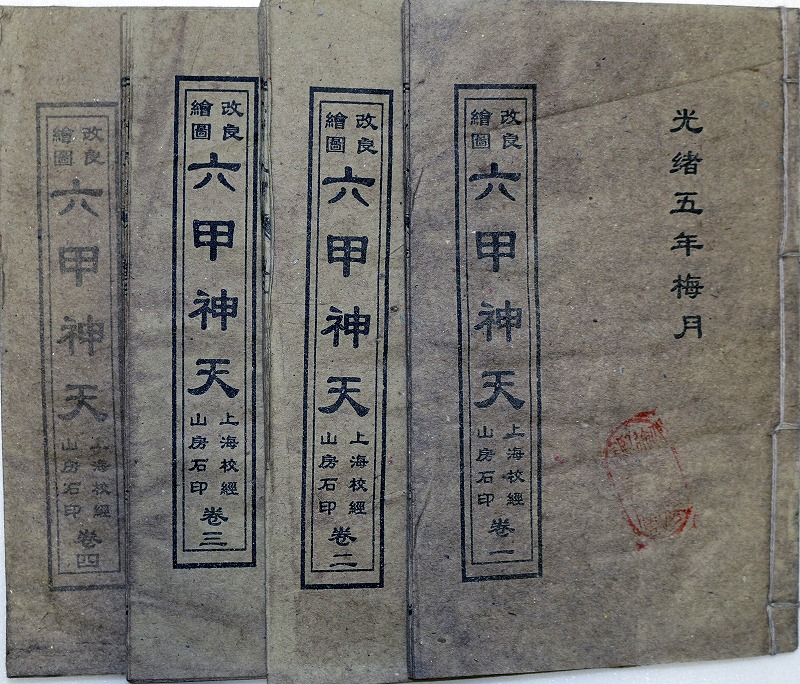 光緒五年梅月
改良
繪圖
六甲神天
上海校經
山房石印
卷一
改良
繪圖
六甲神天
上海校經
山房石印
卷二
改良
繪圖
六甲神天
上海校經
山房石印
卷三
改良
繪圖
六甲神天
上海校經
山房石印
卷四